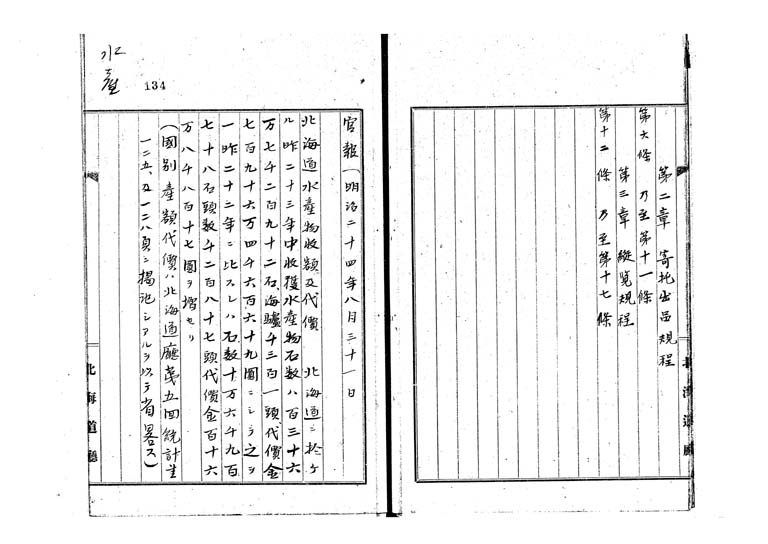 第二章 寄托出品規程
第六條 乃至第十一條
第三章 縦覧規程
第十二條 乃至第十七條
北海道廳
水産
134
官報（明治二十四年八月三十一日
北海道水産物收額及代價 北海道ニ於ケ
ル昨二十三年中收獲水産物石数ハ百三十六
万七千二百九十二石、海驢千三百一頭代價金
七百九十六万四千六百六十九圓ニシテ之ヲ
一昨二十二年ニ比スレハ石数十万六千九百
七十八石頭数千二百八十七頭代價金百十六
万八千八百十七圓ヲ増セリ
（國別産額代價ハ北海道廳第五回統計
一二五、及一二八頁ニ掲 シアルヲ以テ省畧ス）
北海道廳